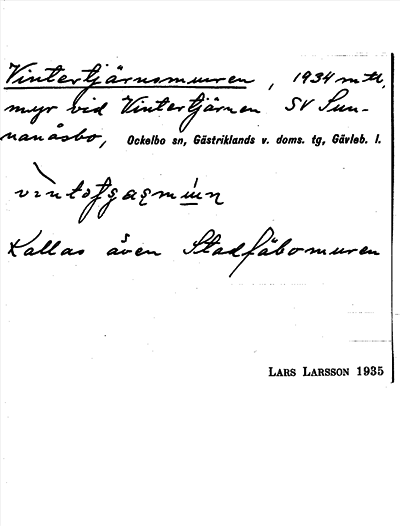 Vintertjärnsmuren, 1934 mtl,
myr vid Vintertjärnen SV Sun-
nanåsbo, Ockelbo sn, Gästriklands v. doms. tg, Gävleb. l.
Kallas även Stadfäbomuren
LARS LARSSON 1935